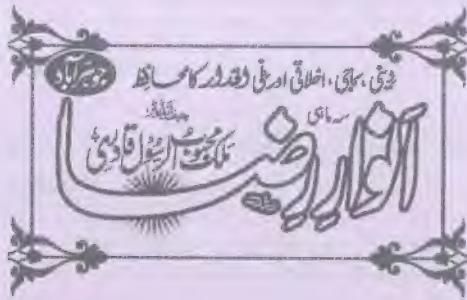 دینی، سماجی، اخلاقی اور ملی اقدار کا محافظ
جوہر آباد
سہ ماہی
انوارِ رضا
ملک محبوب الرسول قادری